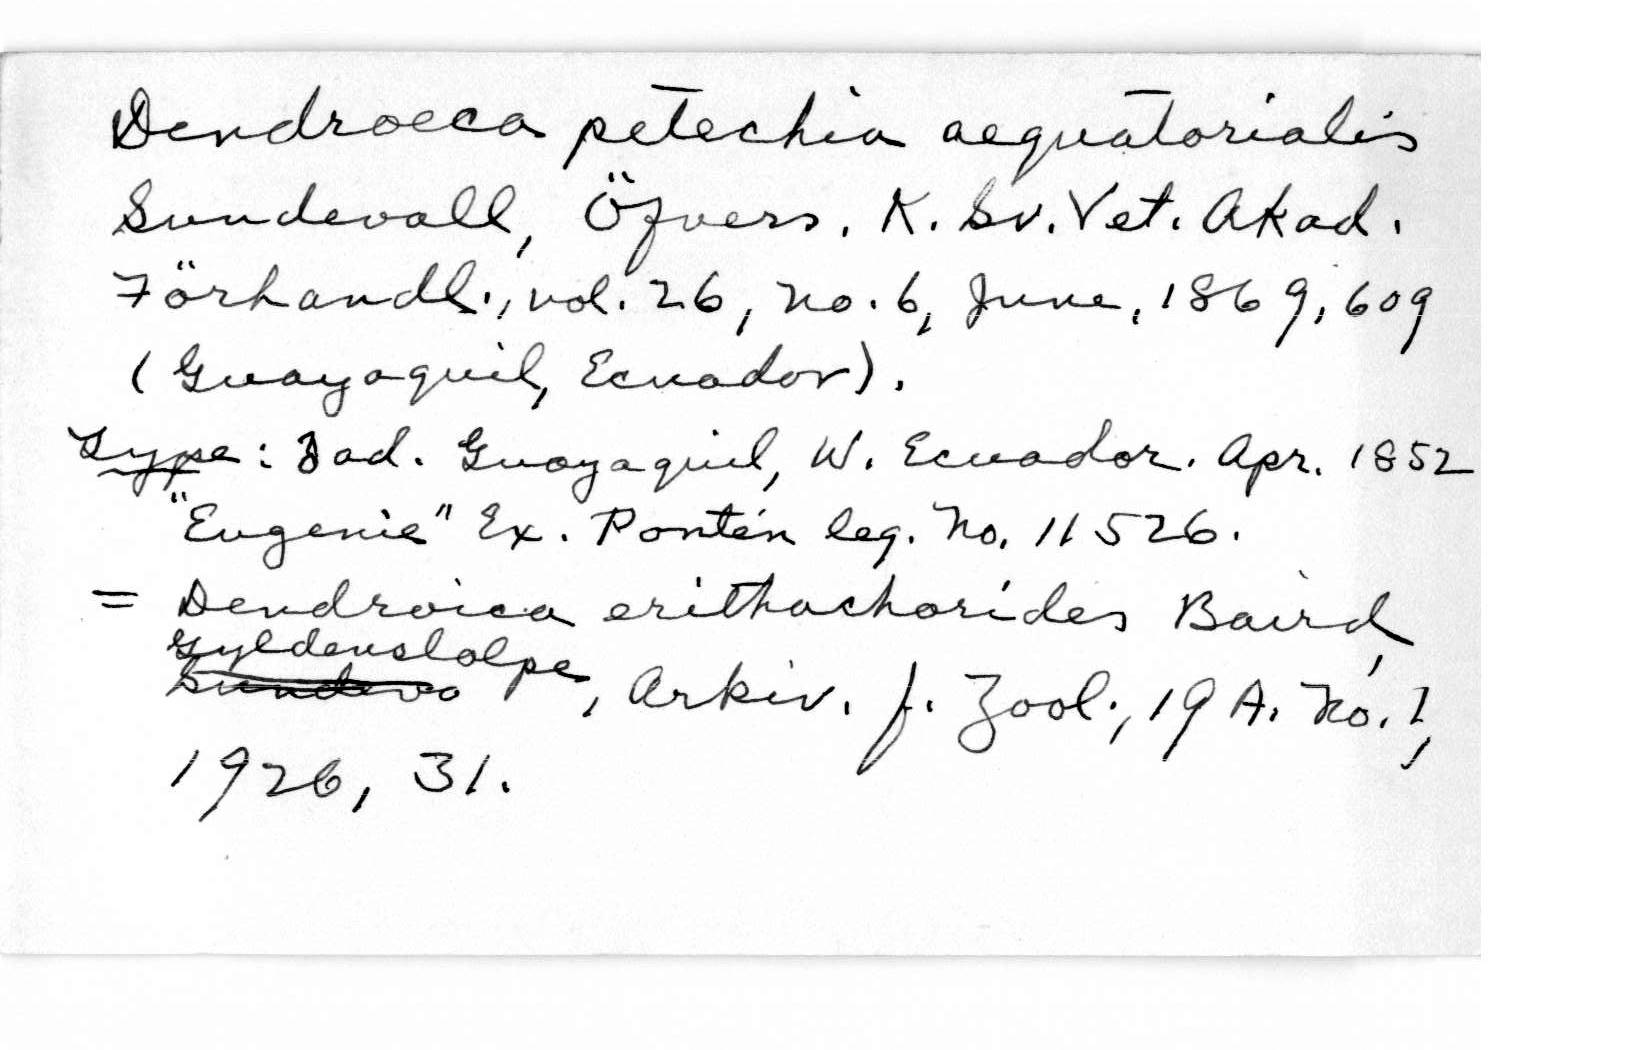 Dendroeca petechia aequatorialis
Sundevall, Öfvers. K. Sv. Vet. Akad.
Förhandl., vol. 26, no. 6, June, 1869, 609
(Guayaquil, Ecuador).
Type: Jad. Guayaquil, W. Ecuador. Apr. 1852
"Eugenie" Ex. Pontén leg. No. 11526.
= Dendroica erithachorides Baird,
Gyldenstolpe
Sundeva, Arkiv. f. Zool., 19 A. No. 1,
1926, 31.